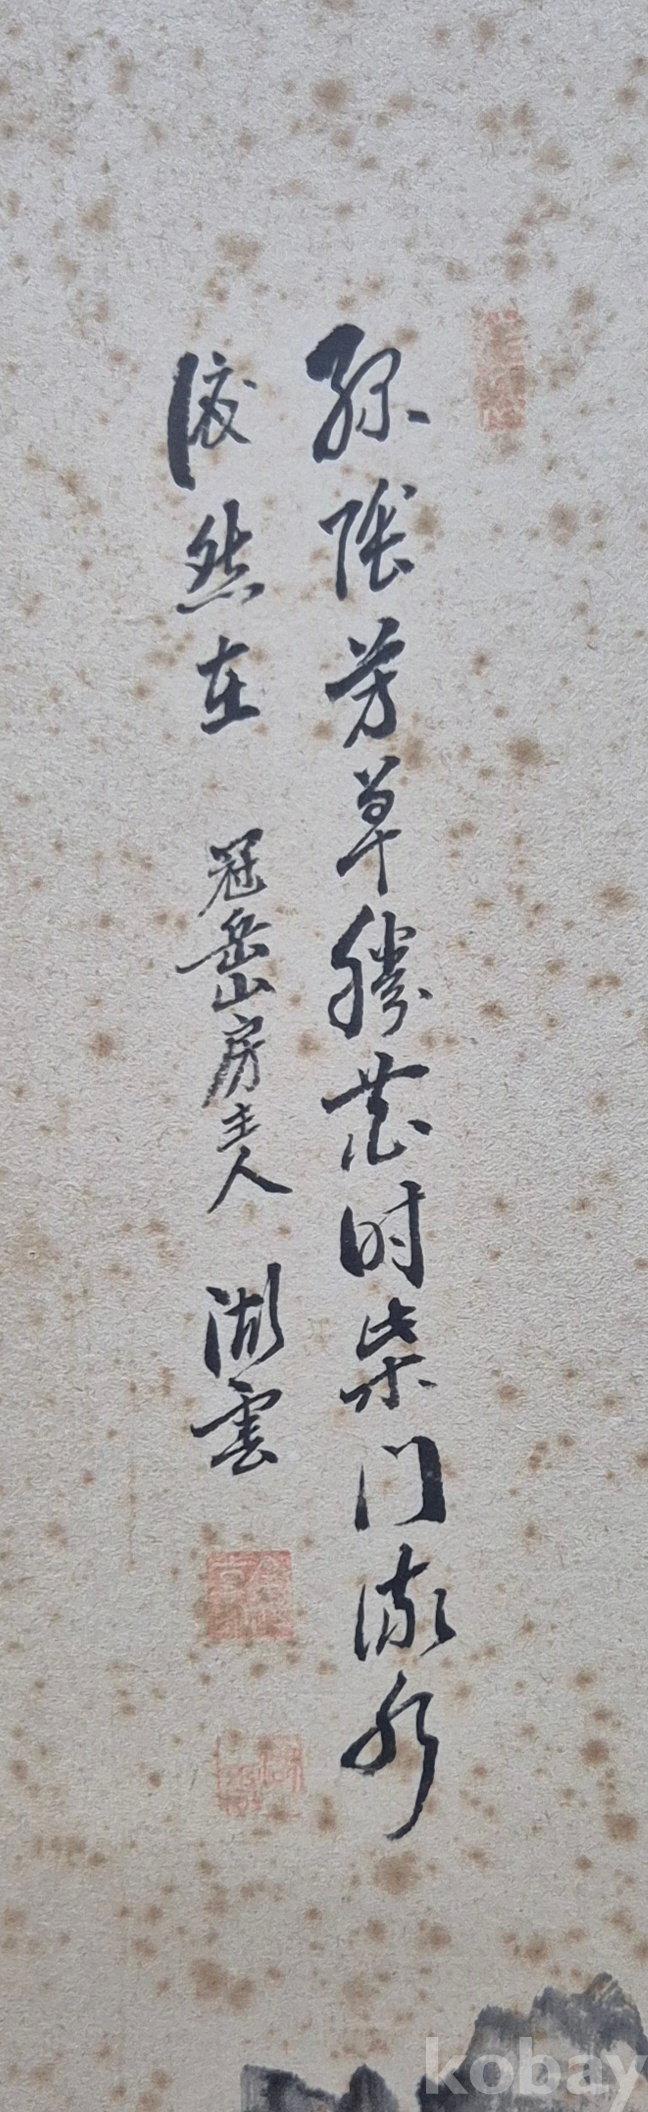 綠陰芳草勝花时柴门流水
依然在 冠岳山房主人 湖雲
kobay